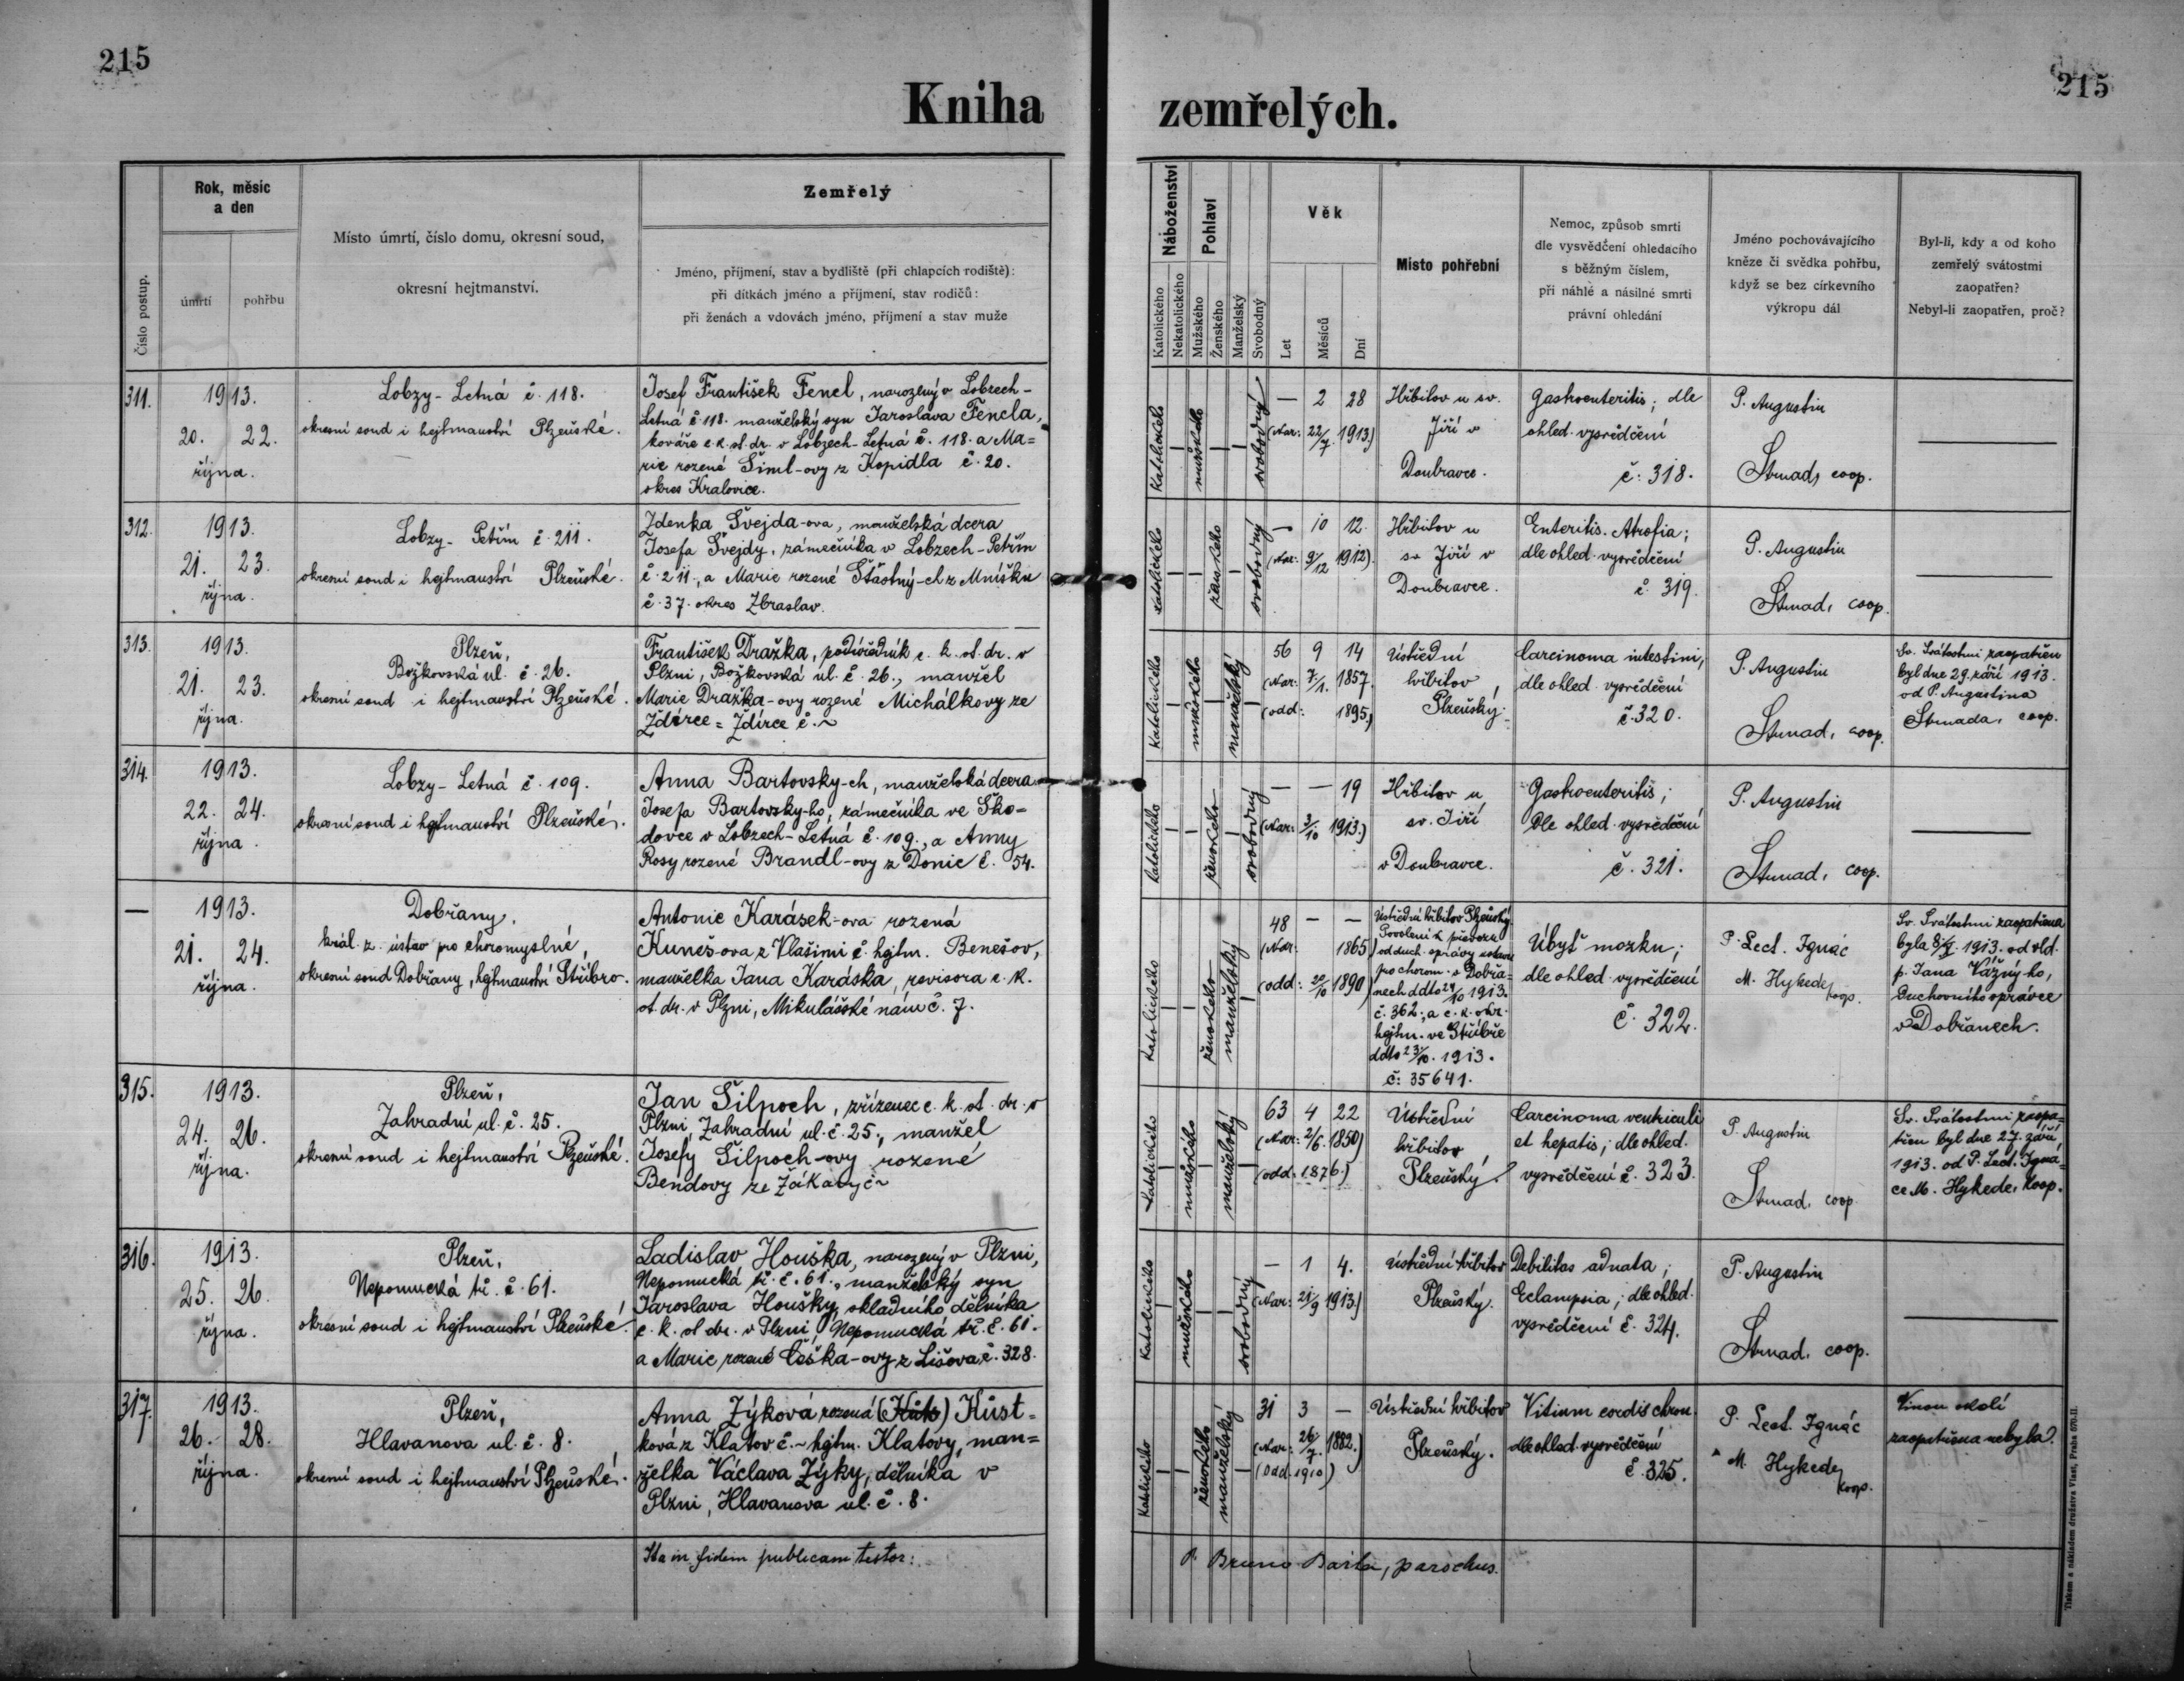 215
215
Kniha zemřelých.
Číslo postup.
Rok, měsíc
a den
úmrtí
pohřbu
Místo úmrtí, číslo domu, okresní soud,
okresní hejtmanství.
Zemřelý
Jméno, příjmení, stav a bydliště (při chlapcích rodiště):
při dítkách jméno a příjmení, stav rodičů:
při ženách a vdovách jméno, příjmení a stav muže
Náboženství
Katolického
Nekatolického
Pohlaví
Mužského
Ženského
Manželský
Svobodný
Věk
Let
Měsíců
Dní
Místo pohřební
Nemoc, způsob smrti
dle vysvědčení ohledacího
s běžným číslem,
při náhlé a násilné smrti
právní ohledání
Jméno pochovávajícího
kněze či svědka pohřbu,
když se bez církevního
výkropu dál
Byl-li, kdy a od koho
zemřelý svátostmi
zaopatřen?
Nebyl-li zaopatřen, proč?
311.
1913.
20. 22.
října.
Lobzy-Letná č. 118.
okresní soud i hejtmanství Plzeňské.
Josef František Fencl, narozený v Lobzech-
Letná č. 118. manželský syn Jaroslava Fencla,
kováře c. k. st. dr. v Lobzech-Letná č. 118. a Ma=
rie rozené Šiml-ovy z Kopidla č. 20.
okres Kralovice.
katolického
mužského
svobodný
— 2 28
(Nar: 22/7. 1913.)
Hřbitov u sv.
Jiří v
Doubravce.
Gastroenteritis; dle
ohled. vysvědčení
č. 318.
P. Augustin
Strnad, coop.
312.
1913.
21. 23.
října.
Lobzy-Petřín č. 211.
okresní soud i hejtmanství Plzeňské.
Zdenka Švejda-ova, manželská dcera
Josefa Švejdy, zámečníka v Lobzech-Petřín
č. 211., a Marie rozené Šťastný-ch z Mníšku
č. 37. okres Zbraslav.
katolického
ženského
svobodný
— 10 12.
(Nar: 9/12 1912).
Hřbitov u
sv Jiří v
Doubravce.
Enteritis. Atrofia;
dle ohled. vysvědčení
č. 319.
P. Augustin
Strnad, coop.
313.
1913.
21. 23.
října.
Plzeň,
Božkovská ul. č. 26.
okresní soud i hejtmanství Plzeňské.
František Dražka, podúředník c. k. st. dr. v
Plzni, Božkovská ul. č. 26., manžel
Marie Dražka-ovy rozené Michálkovy ze
Ždírce = Ždírce č. ~
katolického
mužského
manželský
56 9 14
(Nar: 7/1. 1857.
(odd: 1895.)
Ústřední
hřbitov
Plzeňský.
Carcinoma intestini,
dle ohled. vysvědčení
č. 320.
P. Augustin
Strnad, coop.
Sv. Svátostmi zaopatřen
byl dne 29. září 1913.
od P. Augustina
Strnada, coop.
314.
1913.
22. 24.
října.
Lobzy-Letná č. 109.
okresní soud i hejtmanství Plzeňské.
Anna Bartovsky-ch, manželská dcera
Josefa Bartovsky-ho, zámečníka ve Ško=
dovce v Lobzech-Letná č. 109., a Anny
Rosy rozené Brandl-ovy z Donic č. 54.
katolického
ženského
svobodný
— — 19
(Nar: 3/10 1913.)
Hřbitov u
sv. Jiří
v Doubravce.
Gastroenteritis;
Dle ohled. vysvědčení
č. 321.
P. Augustin
Strnad, coop.
—
1913.
21. 24.
října.
Dobřany,
král. z. ústav pro choromyslné,
okresní soud Dobřany, hejtmanství Stříbro.
Antonie Karásek-ova rozená
Kuneš-ova z Vlašimi č. hejtm. Benešov,
manželka Jana Karáska, revisora c. k.
st. dr. v Plzni, Mikulášské nám č. 7.
katolického
ženského
manželský
48 — —
(Nar: 1865)
(odd: 20/10 1890)
Ústřední hřbitov Plzeňský
Povolení k převozu
od duch. správy ústavu
pro chorom. v Dobřa=
nech ddto 24/10 1913.
č. 362., a c. k. okr.
hejtm. ve Stříbře
ddto 23/10. 1913.
č: 35641.
Úbyť mozku;
dle ohled. vysvědčení
č. 322.
P. Lect. Ignác
M. Hykede,
koop.
Sv. Svátostmi zaopatřena
byla 1913. od vld.
p. Jana Vážný-ho,
Duchovního správce
v Dobřanech.
315.
1913.
24. 26.
října.
Plzeň,
Zahradní ul. č. 25.
okresní soud i hejtmanství Plzeňské.
Jan Šilpoch, zřízenec c. k. st. dr. v
Plzni, Zahradní ul. č. 25., manžel
Josefy Šilpoch-ovy rozené
Bendovy ze Žákavy č ~
katolického
mužského
manželský
63 4 22
(Nar: 2/6. 1850)
(odd: 1876.)
Ústřední
hřbitov
Plzeňský.
Carcinoma ventriculi
et hepatis; dle ohled.
vysvědčení č. 323.
P. Augustin
Strnad, coop.
Sv. Svátostmi zaopa=
třen byl dne 27. září,
1913. od P. Lect. Igná=
ce M. Hykede, koop.
316.
1913.
25. 26.
října.
Plzeň,
Nepomucká tř. č. 61.
okresní soud i hejtmanství Plzeňské.
Ladislav Houška, narozený v Plzni,
Nepomucká tř. č. 61., manželský syn
Jaroslava Houšky, skladního dělníka
c. k. st dr. v Plzni, Nepomucká tř. č. 61.
a Marie rozené Češka-ovy z Lišova, č. 328.
katolického
mužského
svobodný
— 1 4.
(Nar: 21/9 1913.)
Ústřední hřbitov
Plzeňský.
Debilitas adnata;
Eclampsia; dle ohled.
vysvědčení č. 324.
P. Augustin
Strnad, coop.
317.
1913.
26. 28.
října.
Plzeň,
Hlavanova ul. č. 8.
okresní soud i hejtmanství Plzeňské.
Anna Zýková rozená () Kůst=
ková z Klatov č. ~ hejtm. Klatovy, man=
želka Václava Zýky, dělníka v
Plzni, Hlavanova ul. č. 8.
katolického
ženského
manželský
31 3 —
(Nar: 26/7. 1882.)
(Odd. 1910)
Ústřední hřbitov
Plzeňský.
Vitium cordis chron.
dle ohled. vysvědčení
č. 325.
P. Lect. Ignác
M. Hykede,
koop.
Vinou okolí
zaopatřena nebyla.
Ita in fidem publicam testor:
P. Bruno Bařta, parochus.
Tiskem a nákladem družstva Vlast, Praha 570-II.